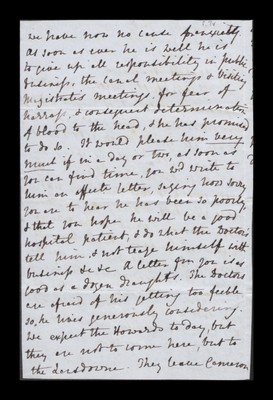 we have now no cause for anxiety.
As soon as ever he is well he is
to give up all responsibility in public
business, the canal meetings & Visiting
Magistrates meetings, for fear of
harrass, & consequent determination
of blood to the head, & he has promised
to do so. It would please him very
much if in a day or two, as soon as
you can find time, you wd write to
him an affecte letter, saying how sorry
you are to hear he has been so poorly
& that you hope he will be a good
hospital patient, & do what the Doctors
tell him, & not teaze himself with
business &c &c A letter fm you is as
good as a dozen draughts. The Doctors
are afraid of his getting too feeble
so, he wines generously considering.
We expect the Howards to day, but
they are not to come here, but to
the Lansdowne. They leave Cameron